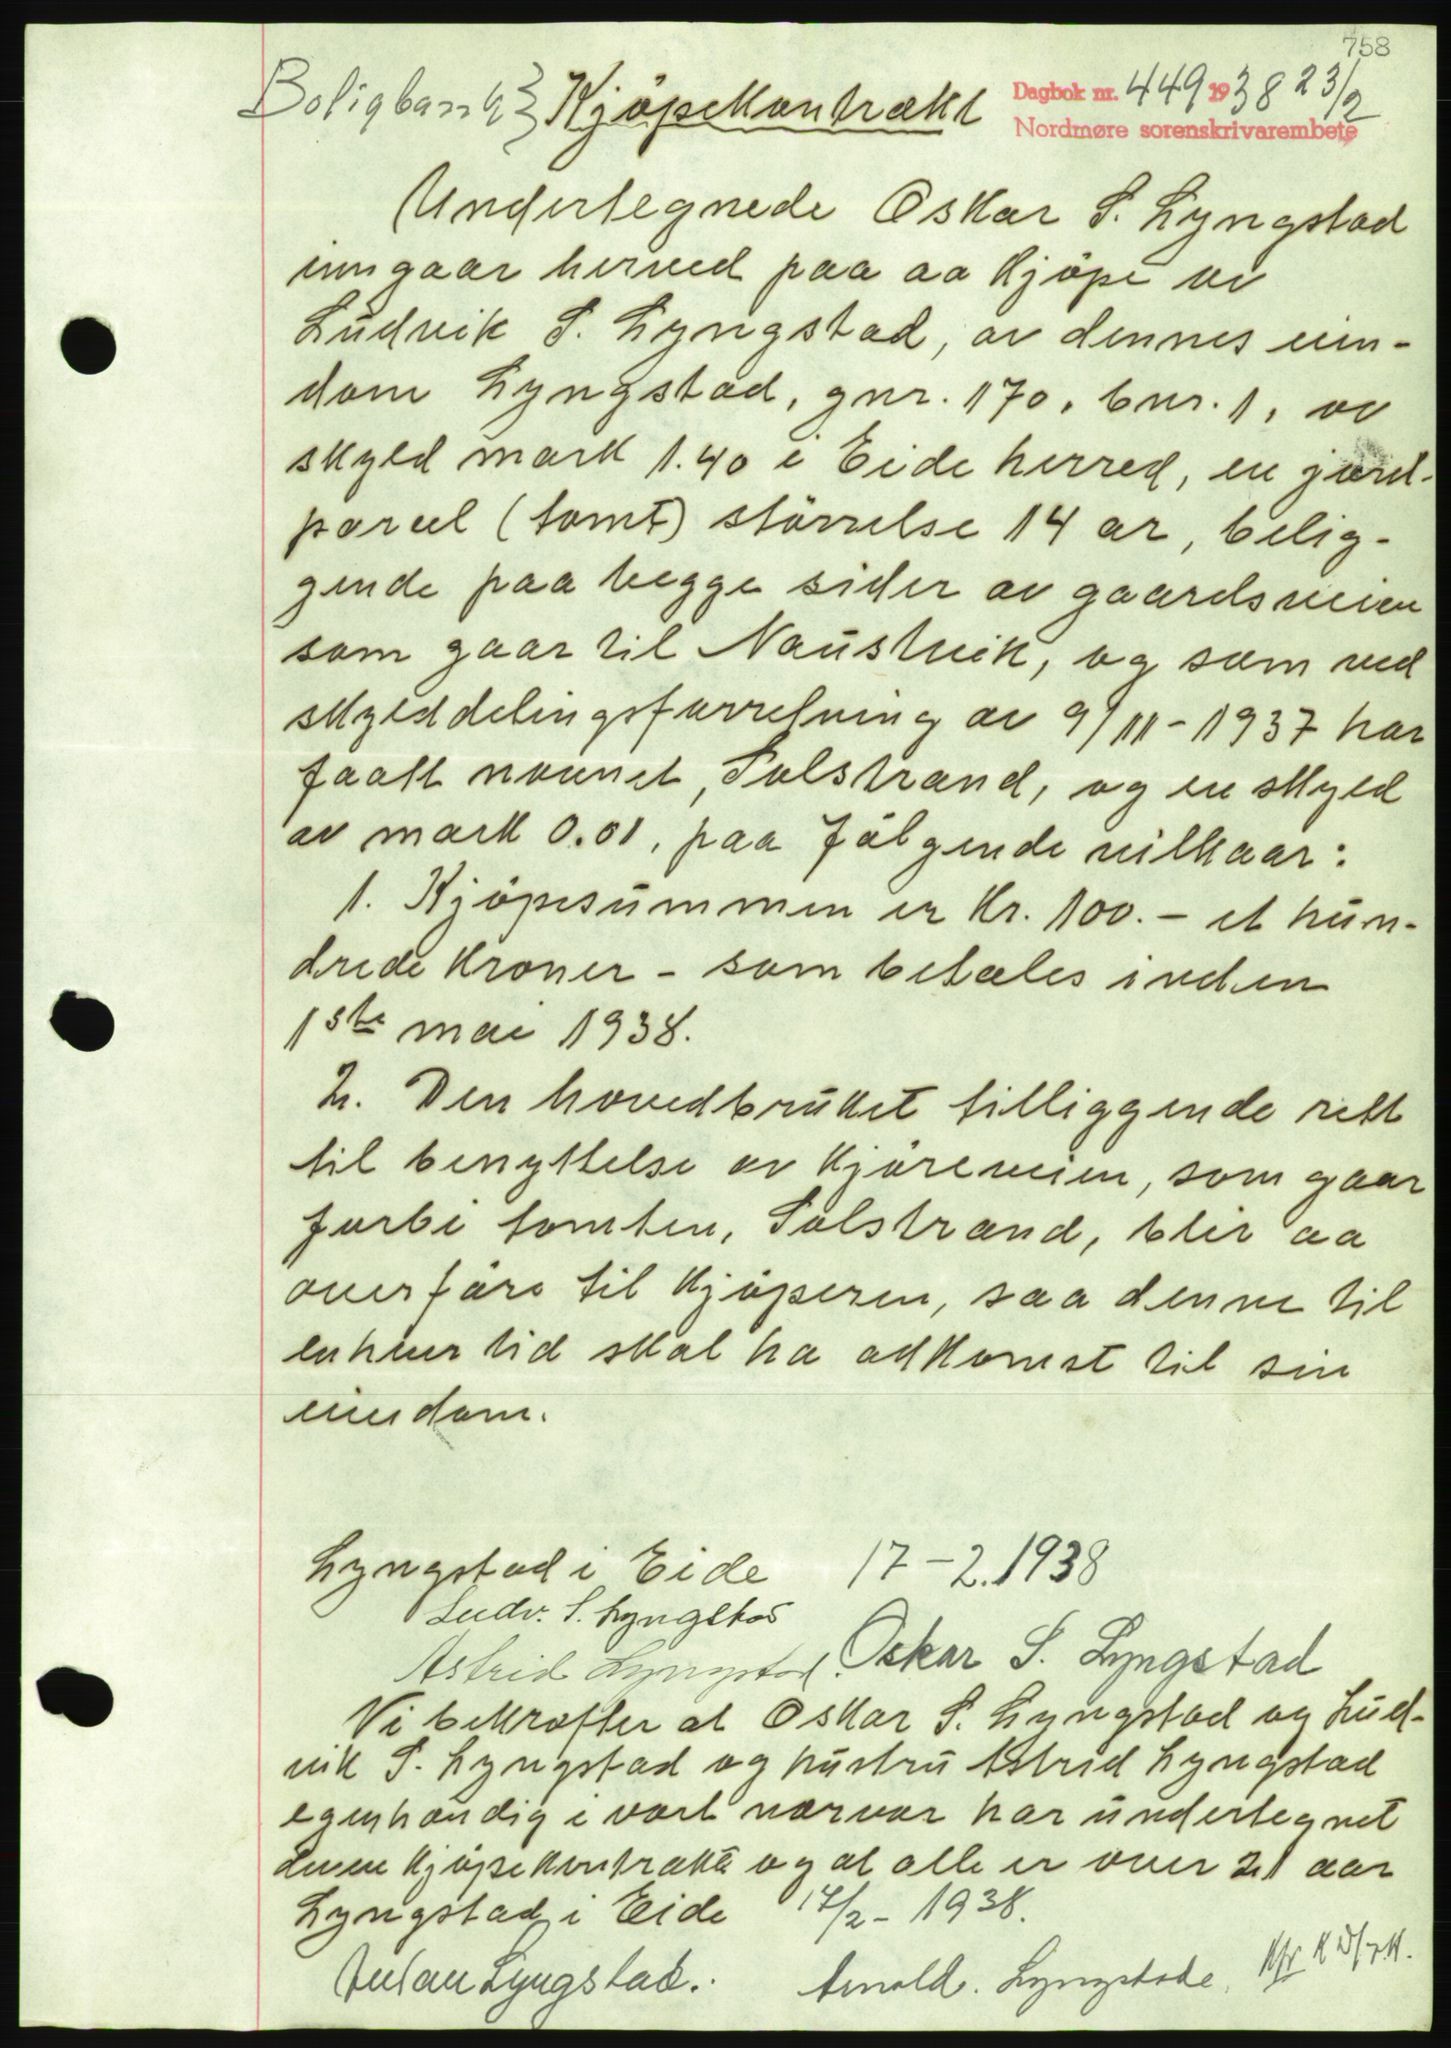 758
Boligbank } Kjöpekontrakt
Dagbok nr. 449 1938 23/2
Nordmøre sorenskrivarembete
Undertegnede Oskar S. Lyngstad
inngaar herved paa aa kjöpe av
Ludvik S. Lyngstad, av dennes eien-
dom Lyngstad, gnr. 170, bnr. 1, av
skyld mark 1.40 i Eide herred, en jord-
parcel (tomt) störrelse 14 ar, belig-
gende paa begge sider av gaardsveien
som gaar til Naustvik, og som ved
skylddelingsforretning av 9/11-1937 har
faatt navnet, Solstrand, og en skyld
av mark 0.01, paa fölgende vilkaar:
1. Kjöpesummen er kr. 100.- et hun-
drede kroner - som betales inden
1ste mai 1938.
2. Den hovedbruket tilliggende rett
til benyttelse av kjöreveien, som gaar
forbi tomten, Solstrand, blir aa
overföre til kjöperen, saa denne til
enhver tid skal ha adkomst til sin
eiendom.
Lyngstad i Eide 17-2.1938
Ludv. S. Lyngstad
Astrid Lyngstad. Oskar S. Lyngstad
Vi bekrefter at Oskar S. Lyngstad og Lud-
vik S. Lyngstad og hustru Astrid Lyngstad
egenhændig i vort nærvær har undertegnet
denne kjöpekontrakt og at alle er over 21 aar
Lyngstad i Eide 17/2-1938.
Lyngstad. Arnold. Lyngstad